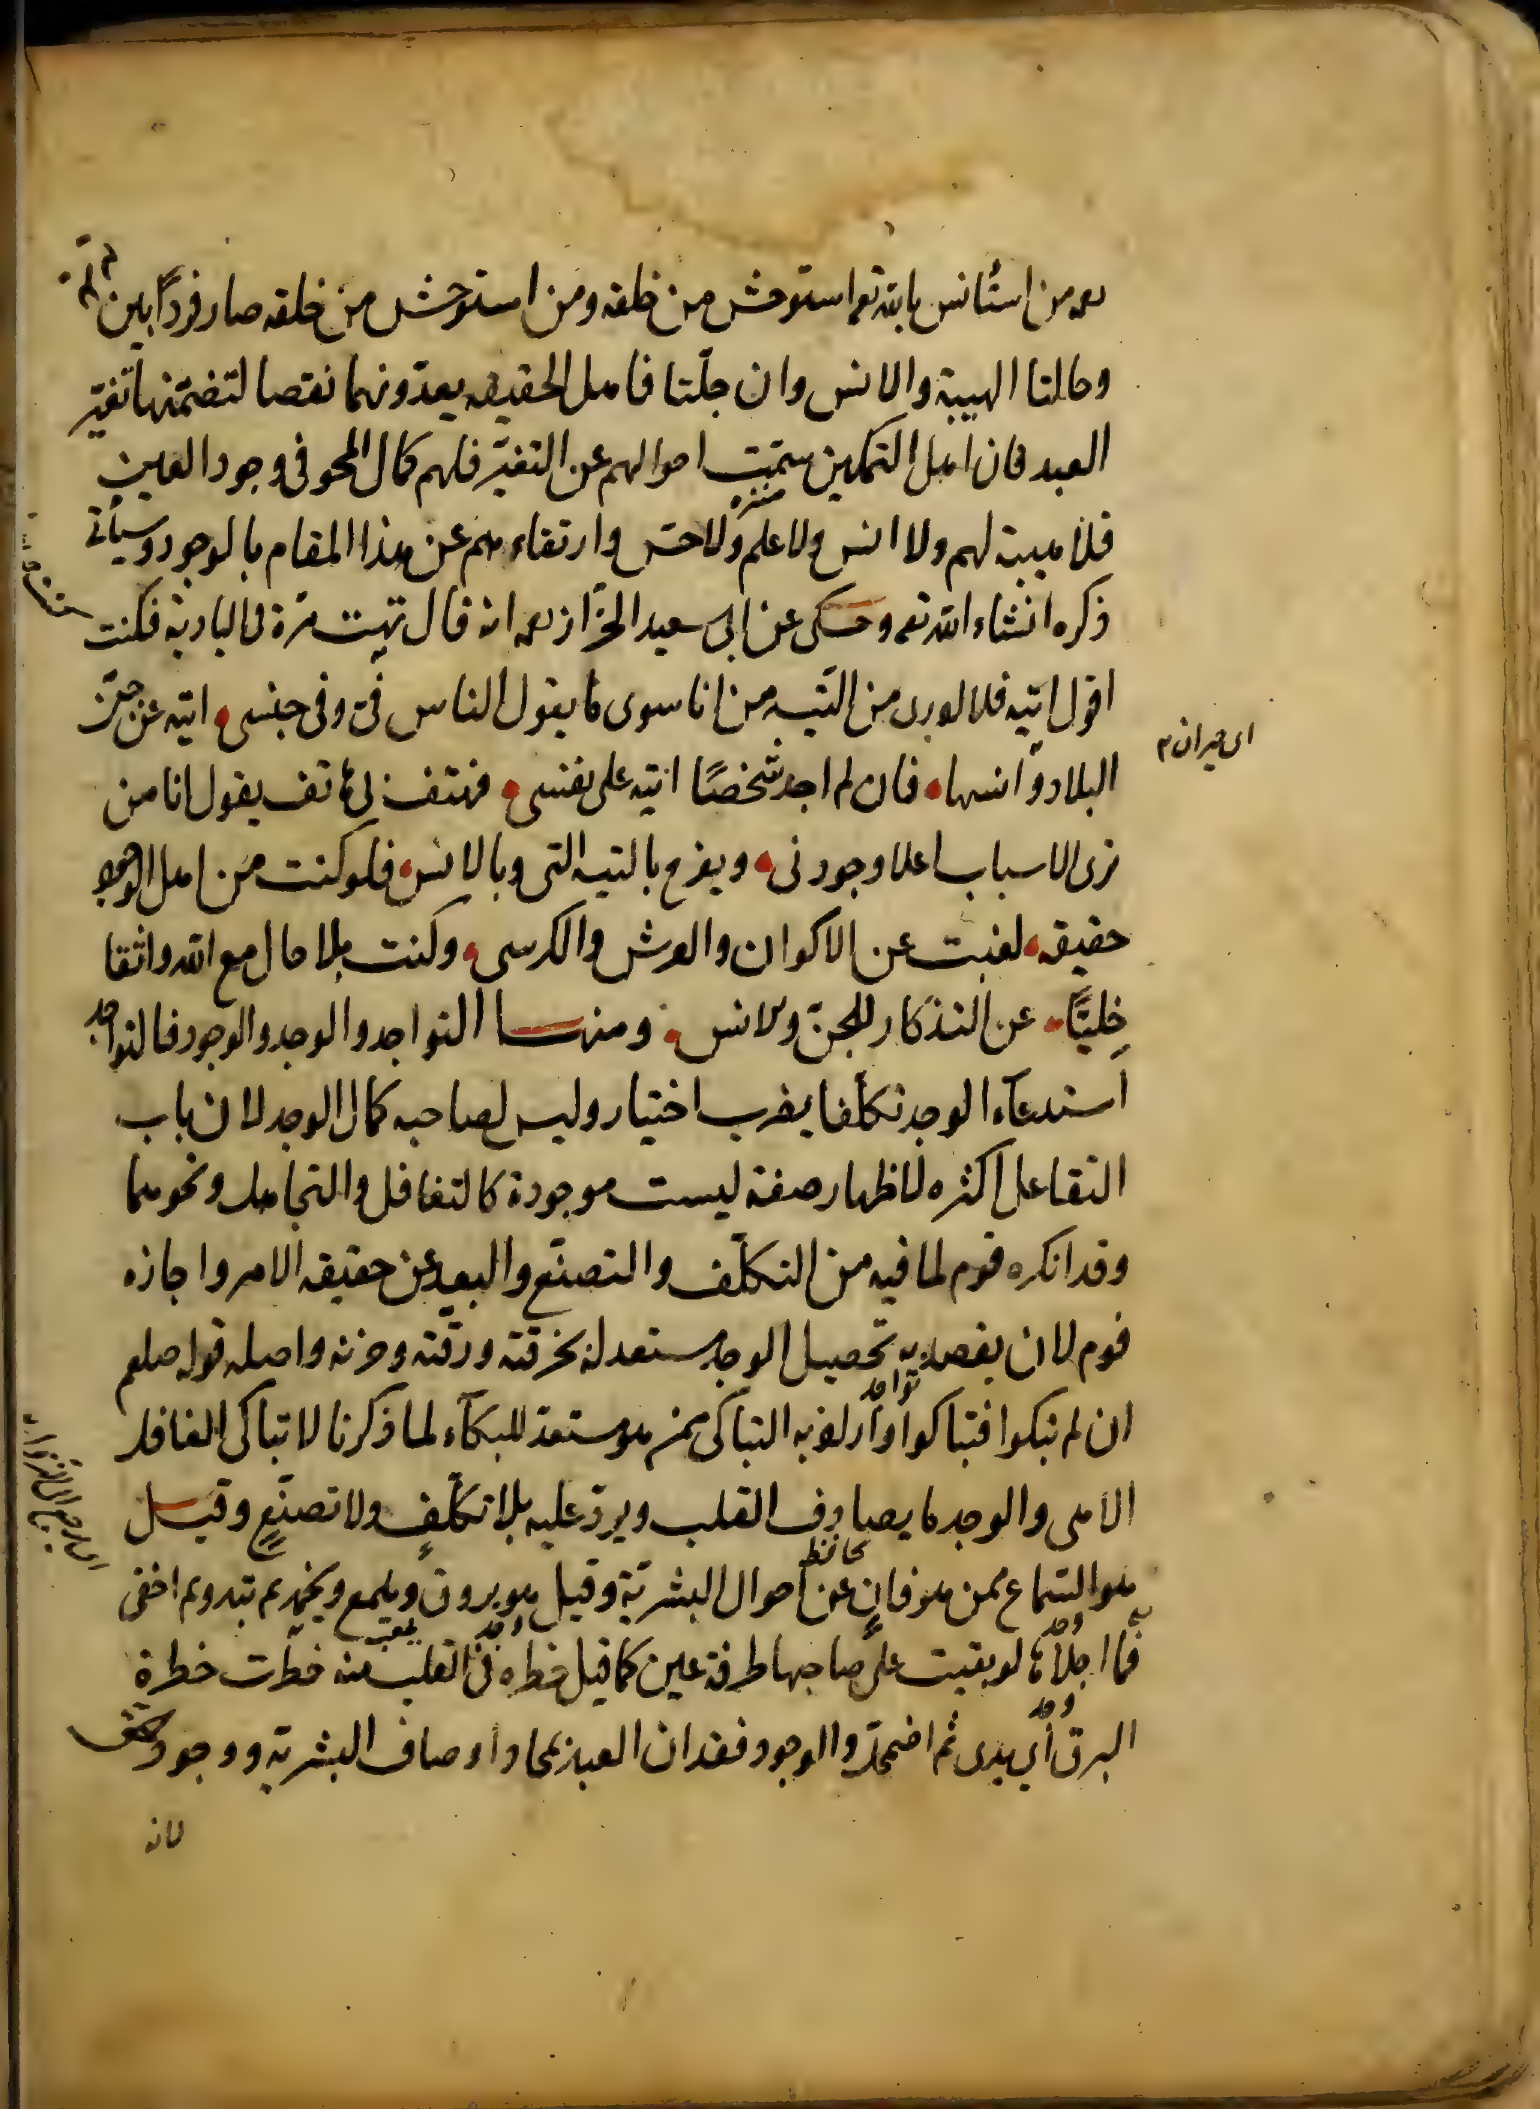 رحمه من استأنس بالله تعم استوحش من خلقه ومن استوحش من خلقه صار فرداً بين
وحالتا الهيبة والانس وان جلّتا فاهل الحقيقه يعدّونهما نقصا لتضمّنهما تغيّر
العبد فان اهل التمكين سمت احوالهم عن التغيّر فلهم كمال المحو فى وجود العين
منزه
فلا هيبة لهم ولا انس ولا علم ولا حس وارتقاء هم عن هذا المقام بالوجود وسيأتى
ذكره انشاء الله تعم وحكى عن ابى سعيد الخرّاز رحمه انه قال تهت مرّة فى البادية فكنت
اقول اتيه فلا ادرى من التيه من انا سوى ما يقول الناس فىّ وفى جنسى اتيه عن جنّ
اى حيران
البلاد وانسها فان لم اجد شخصًا اتيه على نفسى فهتف بى هاتف يقول ايا من
يرى الاسباب اعلا وجودنى ويفرح بالتيه الدنى وبالانس فلو كنت من اهل الوجود
حقيقه لغبت عن الاكوان والعرش والكرسى وكنت بلا حال مع الله واثقا
خليًّا عن التذكار للجنّ ولانس ومنها التواجد والوجد والوجود فالتواجد
استدعآء الوجد تكلّفا بضرب اختيار وليس لصاحبه كمال الوجد لان باب
التفاعل اكثره لاظهار صفة ليست موجودة كالتغافل والتجاهل ونحوهما
وقد انكره قوم لما فيه من التكلّف والتصنّع والبعد عن حقيقه الامر واجازه
قوم لان يقصد به تحصيل الوجد مستعد له بخرقته ورقّته وحزنه واصله قوله صلعم
تواجد
ان لم تبكوا فتباكوا اراد به التباكى ممن هو مستعدّ للبكآء لما ذكرنا لا تباكى الغافل
اللاهى والوجد ما يصادف القلب ويردّ عليه بلا تكلّفٍ ولا تصنّعٍ وقيل
حافظ
هو السّماع ممن هو فانٍ عن احوال البشريّة وقيل هو بروق ويلمع ويخمد ثم تبدو ثم اخفى
فما احلاها لو بقيت على صاحبها طرفة عين كما قيل خطره فى القلب منه خطرت خطرة
البرق اى بدى ثم اضمحلّ والوجود فقدان العبد بمحاو اوصاف البشرية ووجود
لانه